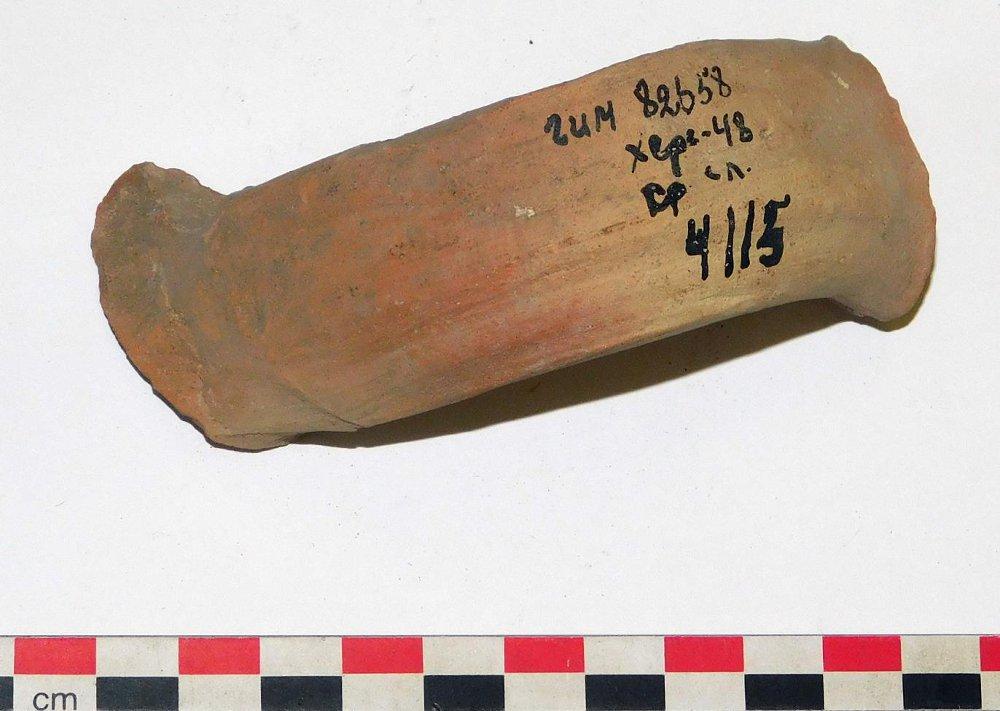 гим 82658
херс-48
ср сл.
4115
cm